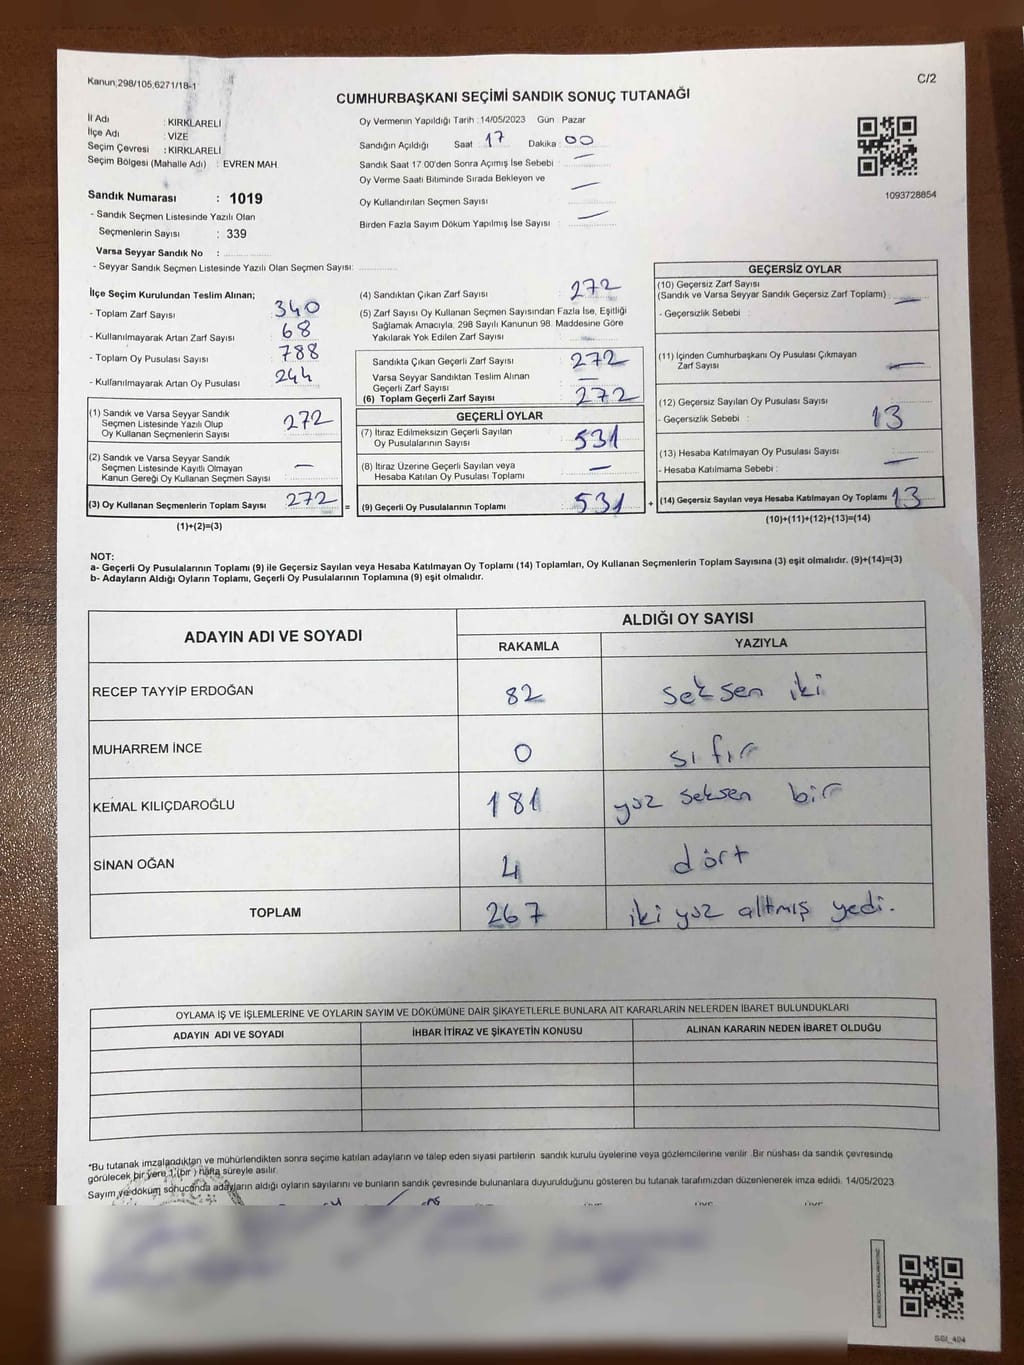 Kanun;298/105,6271/18-1
C/2
CUMHURBAŞKANI SEÇİMİ SANDIK SONUÇ TUTANAĞI
İl Adı : KIRKLARELİ
İlçe Adı : VİZE
Seçim Çevresi : KIRKLARELİ
Seçim Bölgesi (Mahalle Adı) : EVREN MAH
Sandık Numarası : 1019
- Sandık Seçmen Listesinde Yazılı Olan
Seçmenlerin Sayısı : 339
Varsa Seyyar Sandık No :
- Seyyar Sandık Seçmen Listesinde Yazılı Olan Seçmen Sayısı:
Oy Vermenin Yapıldığı Tarih : 14/05/2023 Gün Pazar
Sandığın Açıldığı Saat 17 Dakika 00
Sandık Saat 17:00'den Sonra Açımış İse Sebebi : —
Oy Verme Saati Bitiminde Sırada Bekleyen ve
Oy Kullandırılan Seçmen Sayısı : —
Birden Fazla Sayım Döküm Yapılmış İse Sayısı : —
1093728854
İlçe Seçim Kurulundan Teslim Alınan;
- Toplam Zarf Sayısı : 340
- Kullanılmayarak Artan Zarf Sayısı : 68
- Toplam Oy Pusulası Sayısı : 788
- Kullanılmayarak Artan Oy Pusulası : 244
(1) Sandık ve Varsa Seyyar Sandık
Seçmen Listesinde Yazılı Olup
Oy Kullanan Seçmenlerin Sayısı : 272
(2) Sandık ve Varsa Seyyar Sandık
Seçmen Listesinde Kayıtlı Olmayan
Kanun Gereği Oy Kullanan Seçmen Sayısı : —
(3) Oy Kullanan Seçmenlerin Toplam Sayısı : 272 =
(1)+(2)=(3)
(4) Sandıktan Çıkan Zarf Sayısı : 272
(5) Zarf Sayısı Oy Kullanan Seçmen Sayısından Fazla İse, Eşitliği
Sağlamak Amacıyla, 298 Sayılı Kanunun 98. Maddesine Göre
Yakılarak Yok Edilen Zarf Sayısı :
Sandıkta Çıkan Geçerli Zarf Sayısı : 272
Varsa Seyyar Sandıktan Teslim Alınan
Geçerli Zarf Sayısı : —
(6) Toplam Geçerli Zarf Sayısı : 272
GEÇERLİ OYLAR
(7) İtiraz Edilmeksizin Geçerli Sayılan
Oy Pusulalarının Sayısı : 531
(8) İtiraz Üzerine Geçerli Sayılan veya
Hesaba Katılan Oy Pusulaları Toplamı : —
(9) Geçerli Oy Pusulalarının Toplamı : 531 +
GEÇERSİZ OYLAR
(10) Geçersiz Zarf Sayısı
(Sandık ve Varsa Seyyar Sandık Geçersiz Zarf Toplamı) : —
- Geçersizlik Sebebi :
(11) İçinden Cumhurbaşkanı Oy Pusulası Çıkmayan
Zarf Sayısı : —
(12) Geçersiz Sayılan Oy Pusulası Sayısı :
- Geçersizlik Sebebi : 13
(13) Hesaba Katılmayan Oy Pusulası Sayısı :
- Hesaba Katılmama Sebebi : —
(14) Geçersiz Sayılan veya Hesaba Katılmayan Oy Toplamı : 13
(10)+(11)+(12)+(13)=(14)
NOT:
a- Geçerli Oy Pusulalarının Toplamı (9) ile Geçersiz Sayılan veya Hesaba Katılmayan Oy Toplamı (14) Toplamları, Oy Kullanan Seçmenlerin Toplam Sayısına (3) eşit olmalıdır. (9)+(14)=(3)
b- Adayların Aldığı Oyların Toplamı, Geçerli Oy Pusulalarının Toplamına (9) eşit olmalıdır.
ADAYIN ADI VE SOYADI
ALDIĞI OY SAYISI
RAKAMLA YAZIYLA
RECEP TAYYİP ERDOĞAN 82 seksen iki
MUHARREM İNCE 0 sıfır
KEMAL KILIÇDAROĞLU 181 yüz seksen bir
SİNAN OĞAN 4 dört
TOPLAM 267 iki yüz altmış yedi.
OYLAMA İŞ VE İŞLEMLERİNE VE OYLARIN SAYIM VE DÖKÜMÜNE DAİR ŞİKAYETLERLE BUNLARA AİT KARARLARIN NELERDEN İBARET BULUNDUKLARI
ADAYIN ADI VE SOYADI İHBAR İTİRAZ VE ŞİKAYETİN KONUSU ALINAN KARARIN NEDEN İBARET OLDUĞU
*Bu tutanak imzalandıktan ve mühürlendikten sonra seçime katılan adayların ve talep eden siyasi partilerin sandık kurulu üyelerine veya gözlemcilerine verilir .Bir nüshası da sandık çevresinde
görülecek bir yere 1 (bir ) hafta süreyle asılır.
Sayım ve döküm sonucunda adayların aldığı oyların sayılarını ve bunların sandık çevresinde bulunanlara duyurulduğunu gösteren bu tutanak tarafımızdan düzenlenerek imza edildi. 14/05/2023